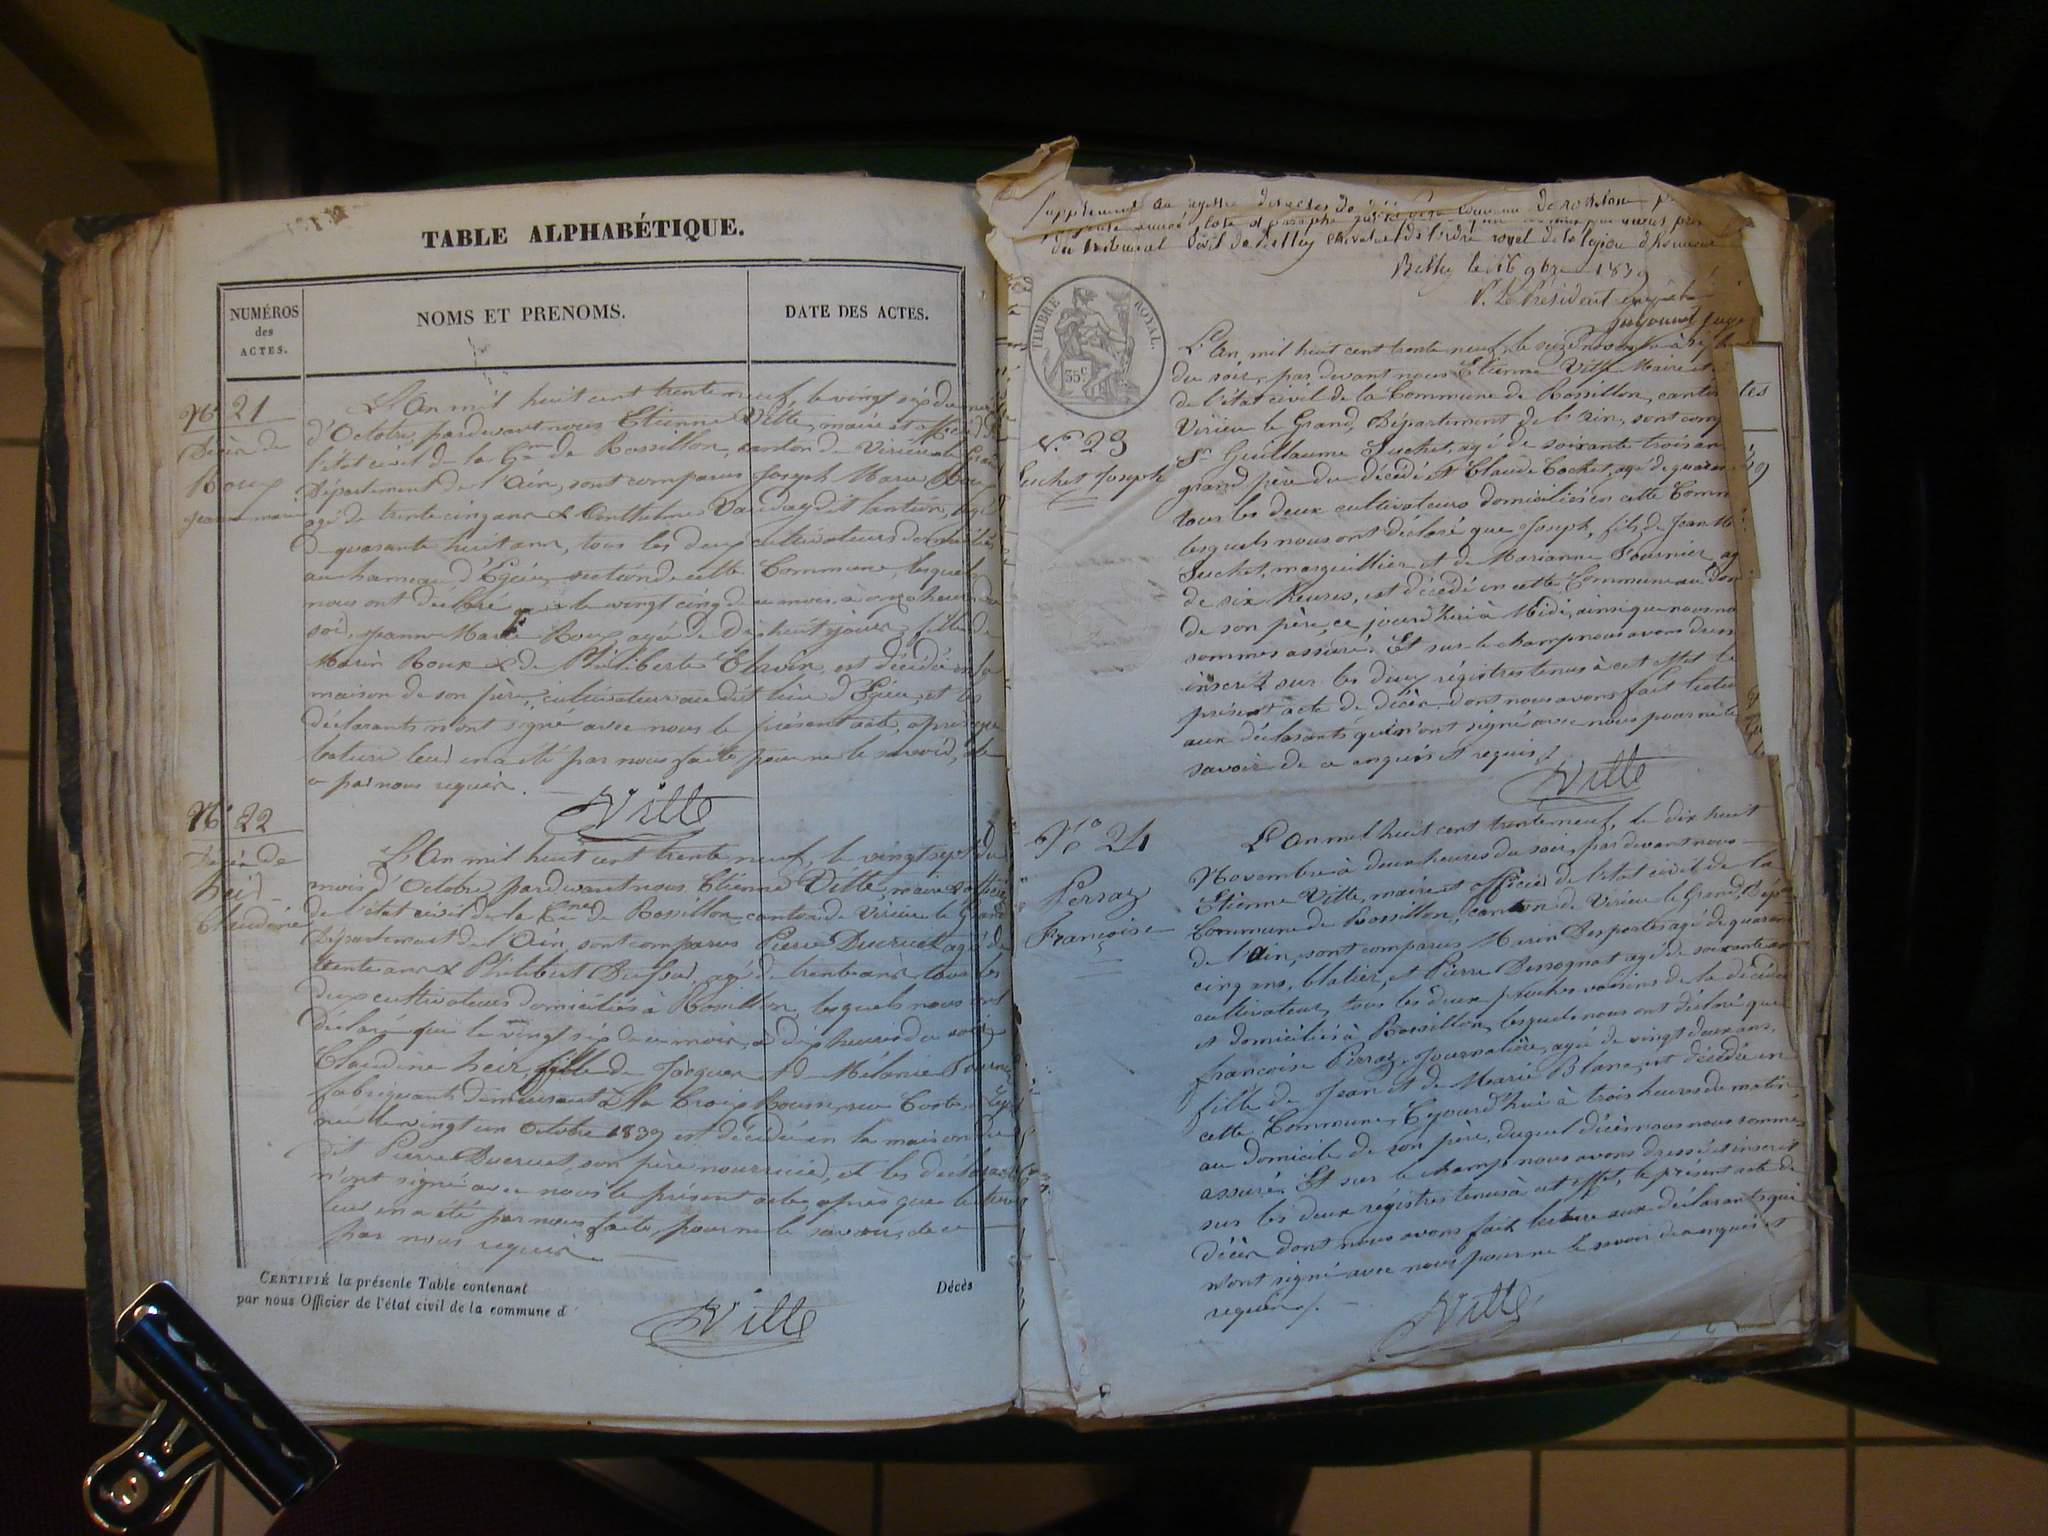 TABLE ALPHABÉTIQUE.
NUMÉROS des ACTES.
NOMS ET PRENOMS.
DATE DES ACTES.
Nº 21
Décès de
Roux
Jeanne Marie
L'An mil huit cent trente neuf, le vingt six du mois
d'Octobre, pardevant nous Etienne Ville, maire et officier de
l'état civil de la Cne de Rossillon, canton de Virieu le Grand
Département de l'Ain, sont comparus Joseph Marie Roux
agé de trente cinq ans & Vauday dit
quarante huit ans, tous les deux cultivateurs domiciliés
au hameau d'Egieu, section de cette Commune, lesquels
nous ont déclaré que le vingt cinq de ce mois, à onze heures du
soir, Jeanne Marie Roux, agée de dix huit jours, fille de
Marin Roux & de Philiberte Clavin, est décédée en la
maison de son père, cultivateur au dit lieu d'Egieu, et les
déclarants n'ont signé avec nous le présent acte, après que
lecture leur en a été par nous faite, pour ne le savoir, de
ce par nous requis.
Ville
Nº 22
Décès de
heir
Claudine
L'An mil huit cent trente neuf, le vingt sept du
mois d'Octobre, pardevant nous Etienne Ville, maire & officier
de l'état civil de la Cne de Rossillon, canton de Virieu le Grand
Département de l'Ain, sont comparus Pierre Ducruet agé de
trente ans & Philibert agé de trente ans, tous les
deux cultivateurs domiciliés à Rossillon, lesquels nous ont
déclaré que le vingt six de ce mois, à dix heures du soir,
Claudine heir, fille de Jacques et de Mélanie
fabriquants demeurant à la Croix Rousse, rue Coste, à
née le vingt un Octobre 1839 est décédée en la maison du
dit Pierre Ducruet, son père nourricier, et les déclarants
n'ont signé avec nous le présent acte, après que lecture
leur en a été par nous faite, pour ne le savoir, de ce
par nous requis.
CERTIFIÉ la présente Table contenant
Décès
par nous Officier de l'état civil de la commune d
Ville
Supplément au registre des actes de décès de la commune de Rossillon
du tribunal Civil de Belley chevalier de l'ordre royal de la légion d'honneur
Belley le 16 9bre 1839
P. Le Président
juge
TIMBRE ROYAL.
35 c
Nº 23
Suchet Joseph
L'An mil huit cent trente neuf, le seize novembre à
du soir, par devant nous Etienne Ville Maire et
de l'état civil de la Commune de Rossillon, canton
Virieu le Grand, Département de l'Ain, sont comp
Sr Guillaume Suchet, agé de soixante trois ans
grand père du décédé et Claude Cochet, agé de quaran
tous les deux cultivateurs domiciliés en cette Comm
lesquels nous ont déclaré que Joseph, fils de Jean
Suchet, marguillier et de Marianne Fournier, ag
de six heures, est décédé en cette Commune au dom
de son père, ce jourd'hui à Midi, ainsi que nous no
sommes assuré. Et sur le champ nous avons dress
inscrit sur les deux régistres tenus à cet effet le
présent acte de décès, dont nous avons fait lectu
aux déclarants qui n'ont signé avec nous pour ne le
savoir de ce enquis et requis.
Ville
tes
Nº 24
Perraz
Françoise
L'an mil huit cent trente neuf, le dix huit
Novembre à deux heures du soir, par devant nous
Etienne Ville, maire et officier de l'état civil de la
Commune de Rossillon, canton de Virieu le Grand, Dépt
de l'Ain, sont comparus Marin Desportes agé de quarante
cinq ans, blatier, et Pierre Dessognat agé de soixante ans
cultivateur, tous les deux proches voisins de la décédée
et domiciliés à Rossillon, lesquels nous ont déclaré que
françoise Perraz, Journalière, agée de vingt deux ans,
fille de Jean et de Marie Blanc, est décédée en
cette Commune, Cejourd'hui à trois heures du matin
au domicile de son père, duquel décès nous nous sommes
assuré. Et sur le champ nous avons dressé et inscrit
sur les deux régistres tenus à cet effet, le présent acte de
décès dont nous avons fait lecture aux déclarants qui
n'ont signé avec nous pour ne le savoir de ce enquis et
requis.
Ville